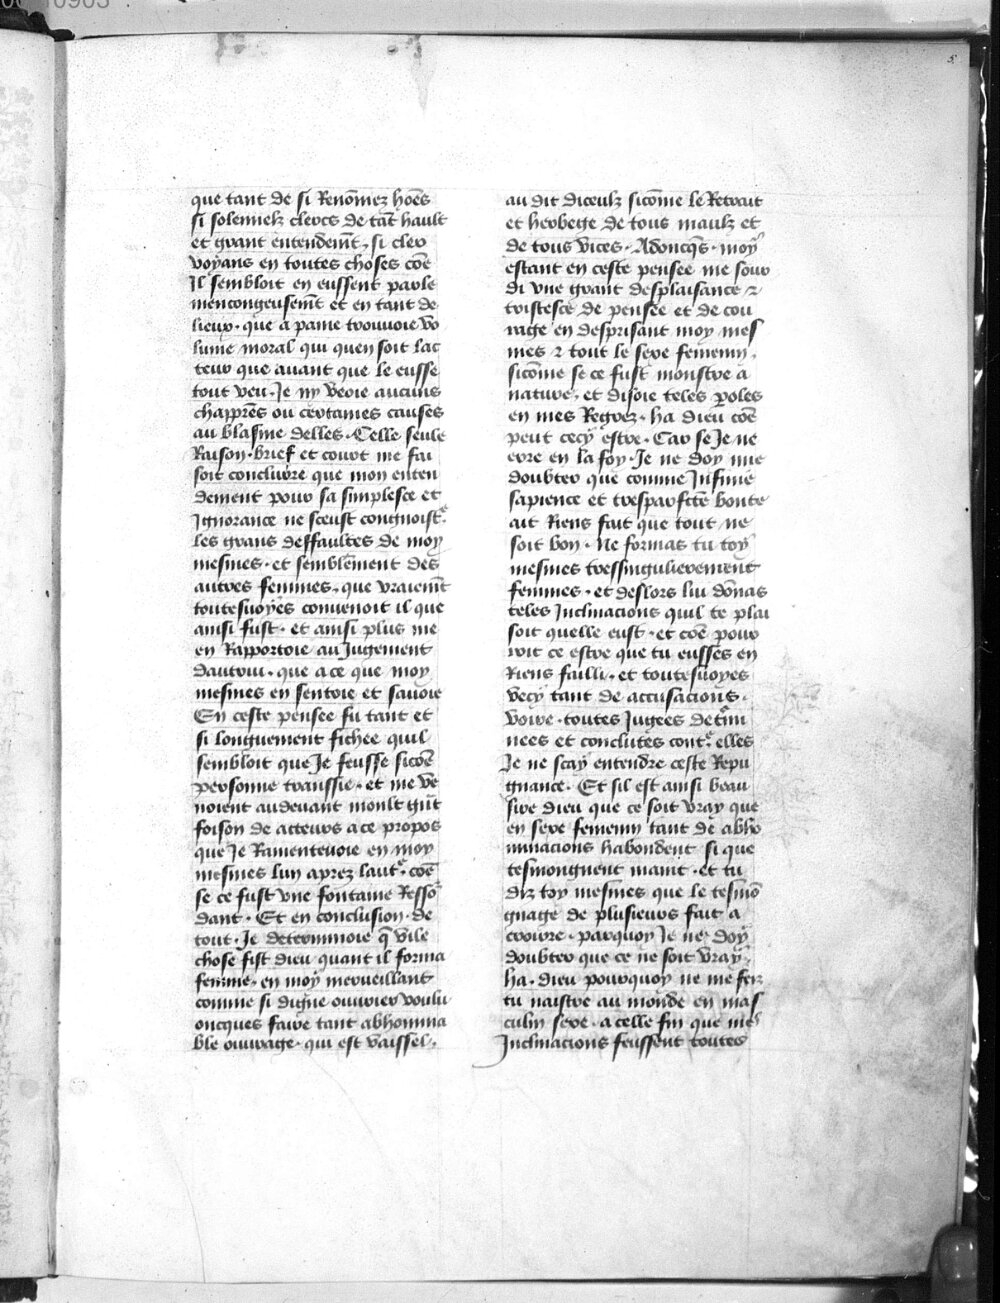 que tant de si Renōmez hōes
si solemnelz clercs de tāt hault
et grant entendemt̄, si cler
voyans en toutes choses cōe
Il sembloit en eussent parle
mencongeusemt̄ et en tant de
lieux · que a paine trouuoie vo
lume moral qui quen soit lac
teur que auant que le eusse
tout veu, Je ny veoie aucuns
chappr̄es ou certaines causes
au blasme delles · Celle seule
Raison · brief et court me fai
soit conclurre que mon enten
dement pour sa simplesce et
Ignorance ne sceust congnoistr̄e
les grans deffaultes de moy
mesmes · et semblēment des
autres femmes, que vraiemt̄
toutesuoyes conuenoit il que
ainsi fust · et ainsi plus me
en Rapportoie au Jugement
dautrui · que a ce que moy
mesmes en sentoie et sauoie
En ceste pensee fu tant et
si longuement fichee quil
sembloit que Je feusse sicōe
personne transsie · et me ve
noient audeuant moult grāt
foison de acteurs a ce propos
que Je Ramenteuoie en moy
mesmes lun aprez lautr̄e · cōe
se ce fust vne fontaine Resso
dant · Et en conclusion · de
tout · Je determinoie q̄ vile
chose fist dieu quant il forma
fem̄e, en moy merueillant
comme si digne ouurier voulu
oncques faire tant abhomina
ble ouurage · qui est vaissel,
5
au dit diceulz sicōme le Retrait
et herberge de tous maulz et
de tous vices · Adoncq̄s · moy
estant en ceste pensee me sour
di vne grant desplaisance ⁊
tristesce de pensee et de cou
rage en desprisant moy mes
mes ⁊ tout le sexe femenin,
sicōme se ce fust monstre a
nature, et disoie teles p̄oles
en mes Regrez · ha dieu cōe
peut cecy estre · Car se Je ne
erre en la foy · Je ne doy mie
doubter que comme Infinie
sapience et tresparfcte bonte
ait Riens fait que tout ne
soit bon · Ne formas tu toy
mesmes tressingulierement
femmes · et deslors lui dōnas
teles Inclinacions quil te plai
soit quelle eust · et cōe pour
roit ce estre que tu eusses en
Riens failli · et toutesuoyes
vecy tant de accusacions ·
voire · toutes Jugees det̄mi
nees et conclutes contr̄e elles
Je ne scay entendre ceste Repu
gnance · Et sil est ainsi beau
sire dieu que ce soit vray que
en sexe femenin tant de abho
minacions habondent si que
tesmongnent maint · et tu
diz toy mesmes que le tesmo
gnage de plusieurs fait a
croirre · parquoy Je ne doy
doubter que ce ne soit vray,
ha · dieu pourquoy ne me feiz
tu naistre au monde en mas
culin sexe · a celle fin que mes
Inclinacions feussent toutes